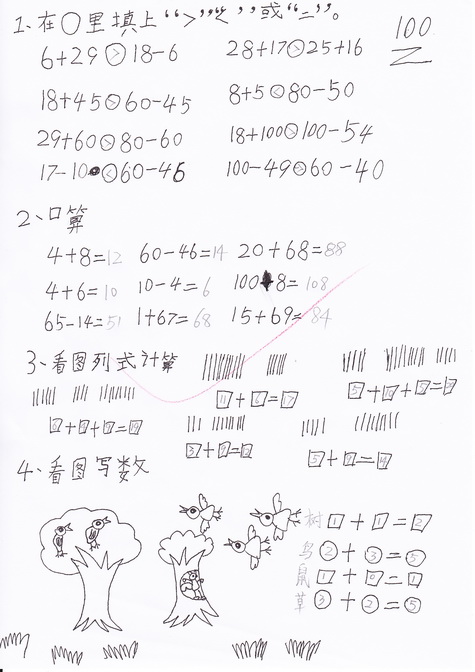 1、在○里填上“>”“<”或“=”。
100
6+29>18-6 28+17>25+16
18+45>60-45 8+5<80-50
29+60>80-60 18+100>100-54
17-10<60-46 100-49>60-40
2、口算
4+8=12 60-46=14 20+68=88
4+6=10 10-4=6 100+8=108
65-14=51 1+67=68 15+69=84
3、看图列式计算
11+6=17
4、看图写数
树 1+1=2
鸟 2+3=5
鼠 1+0=1
草 3+2=5